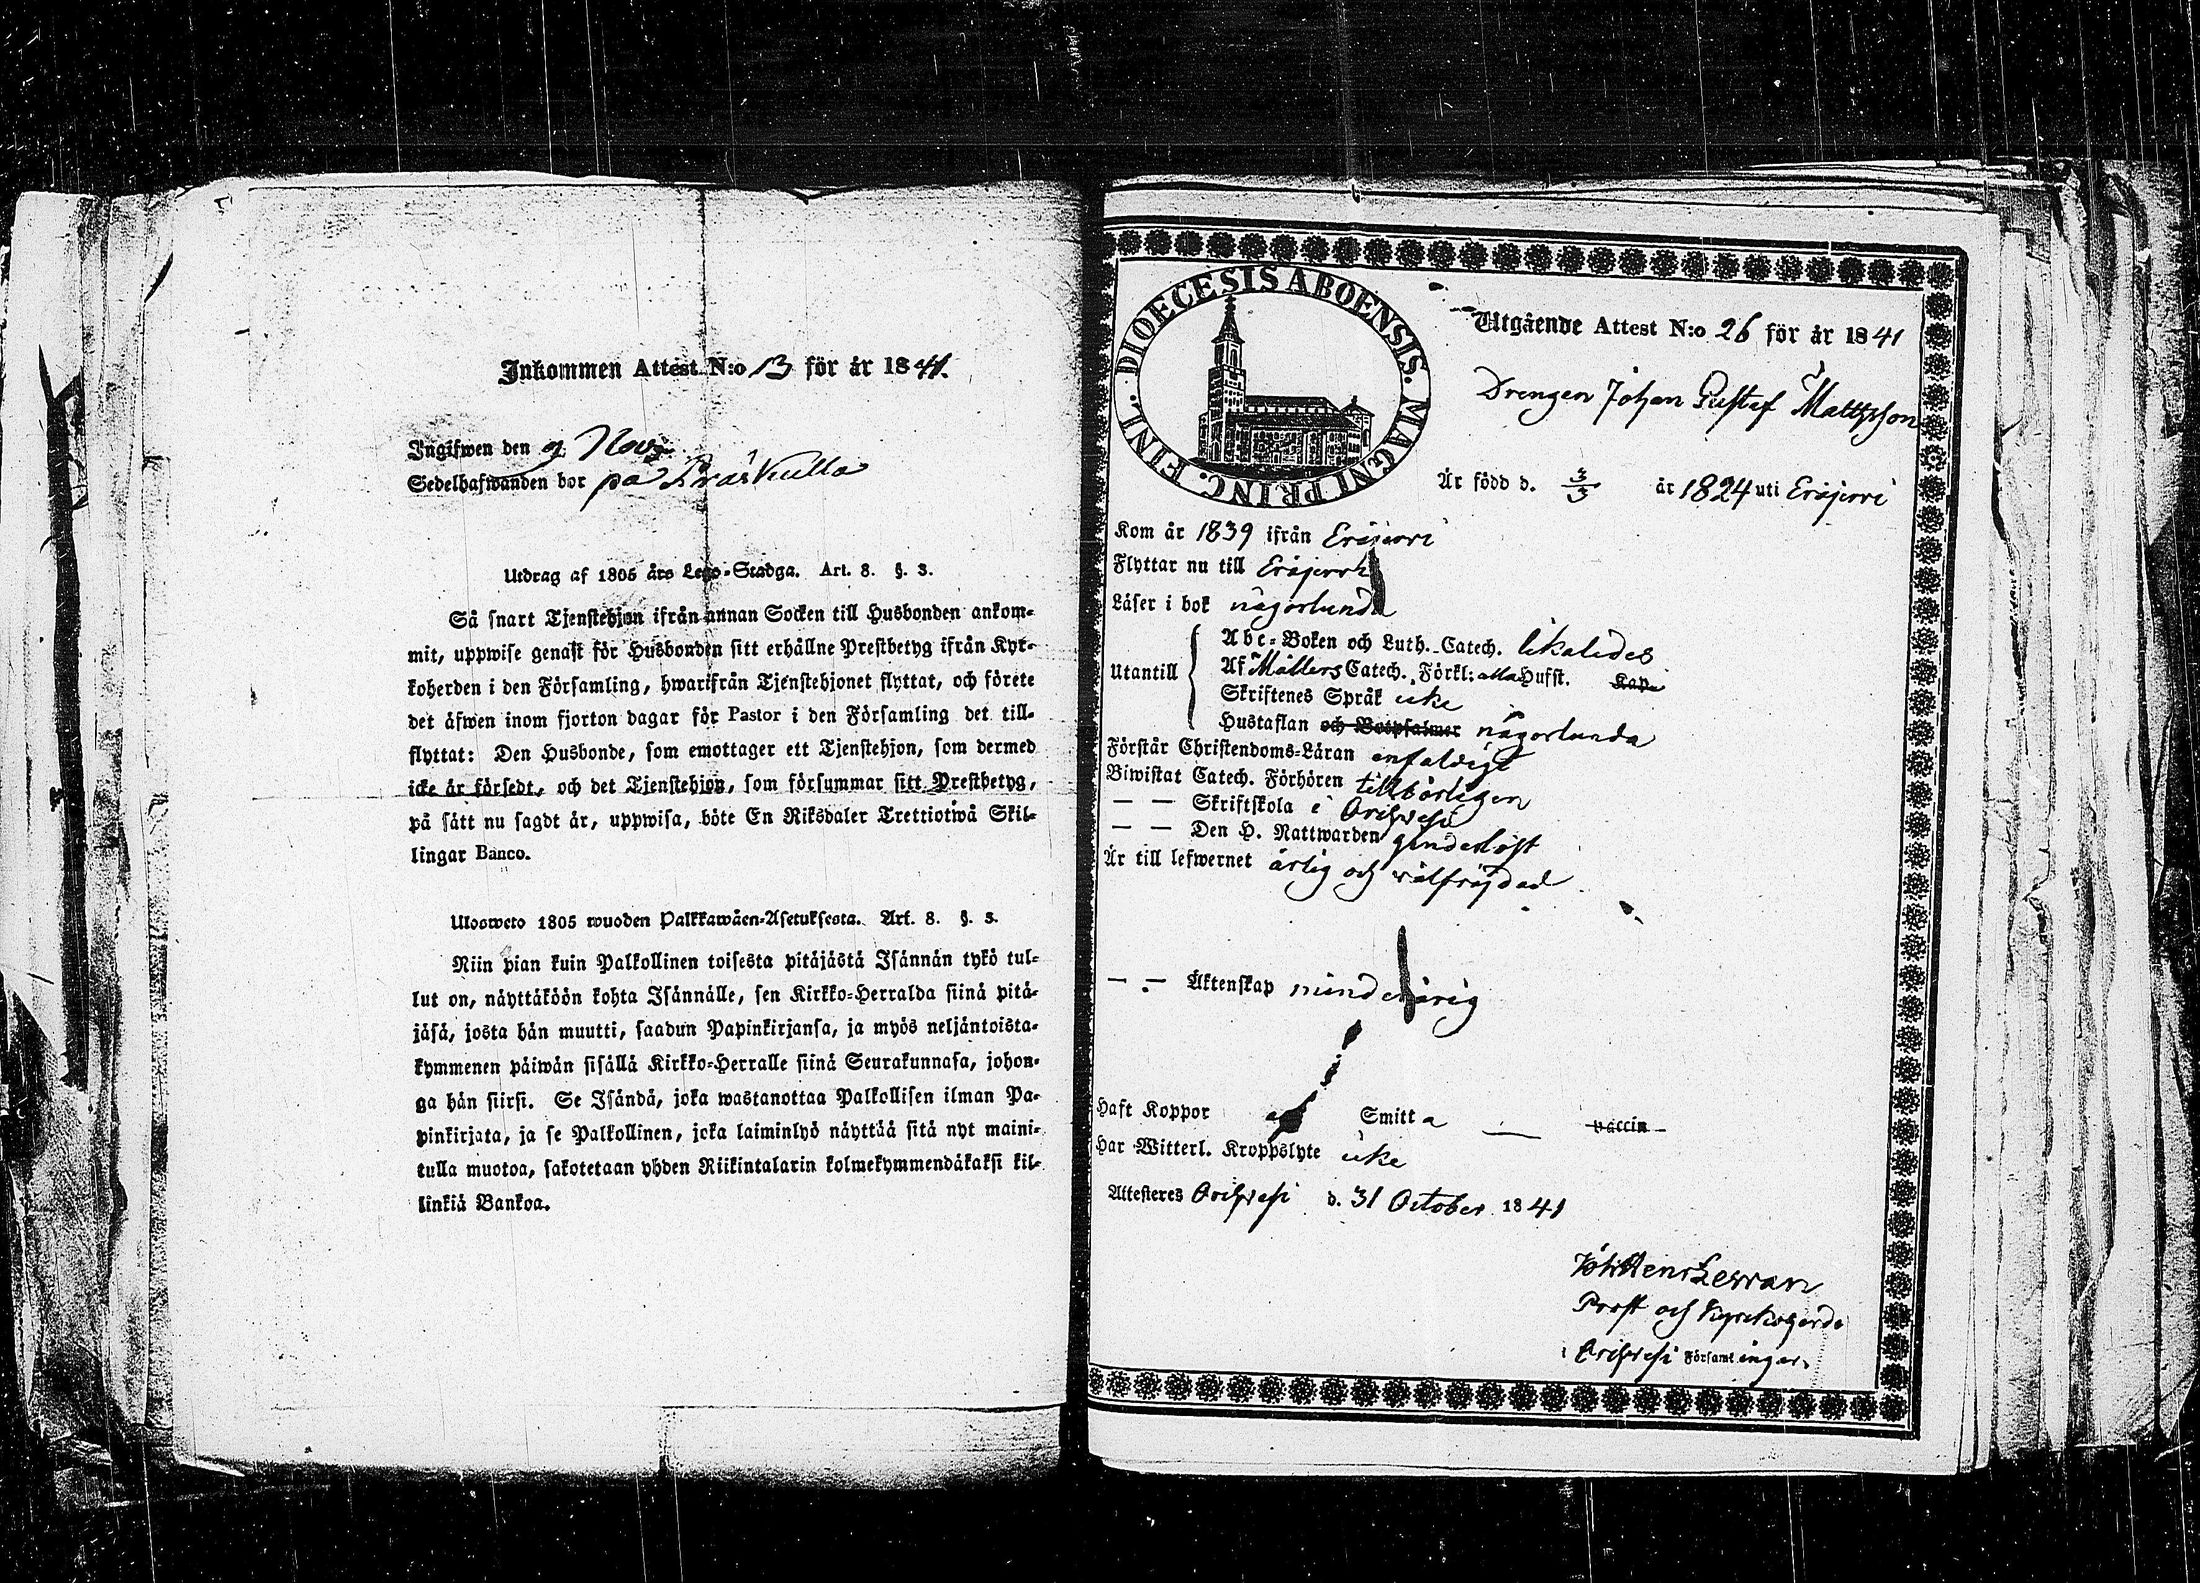 Inkommen Attest N:o 13 för år 1841.
Ingifwen den 9 Nov:
Sedelhafwanden bor på Präskulla
Utdrag af 1805 års Lego-Stadga. Art. 8. §. 3.
Så snart Tjenstehjon ifrån annan Socken till Husbonden ankom-
mit, uppwise genast för Husbonden sitt erhållne Prestbetyg ifrån Kyr-
koherden i den Församling, hwarifrån Tjenstehjonet flyttat, och förete
det äfwen inom fjorton dagar för Pastor i den Församling det till-
flyttat: Den Husbonde, som emottager ett Tjenstehjon, som dermed
icke är försedt, och det Tjenstehjon, som försummar sitt Prestbetyg,
på sätt nu sagdt är, uppwisa, böte En Riksdaler Trettiotwå Skil-
lingar Banco.
Ulosweto 1805 wuoden Palkkawäen-Asetuksesta. Art. 8. §. 3.
Niin pian kuin Palkollinen toisesta pitäjästä Isännän tykö tul-
lut on, näyttäköön kohta Isännälle, sen Kirkko-Herralda siinä pitä-
jäsä, josta hän muutti, saadun Papinkirjansa, ja myös neljäntoista-
kymmenen päiwän sisällä Kirkko-Herralle siinä Seurakunnasa, johon-
ga hän siirsi. Se Isändä, joka wastanottaa Palkollisen ilman Pa-
pinkirjata, ja se Palkollinen, joka laiminlyö näyttää sitä nyt maini-
tulla muotoa, sakotetaan yhden Riikintalarin kolmekymmendäkaksi kil-
linkiä Bankoa.
DIOECESIS ABOENSIS. MAGNI PRINC. FINL.
Utgående Attest N:o 26 för år 1841
Drengen Johan Gustaf Mattsson
Är född d. 3/3 år 1824 uti Eräjervi
Kom år 1839 ifrån Eräjervi
Flyttar nu till Eräjervi
Läser i bok någorlunda
Utantill
Abc-Boken och Luth. Catech. likaledes
Af Möllers Catech. Förkl: alla Hufst. Kap.
Skriftenes Språk icke
Hustaflan och Botpsalmer någorlunda
Förstår Christendoms-Läran enfaldigt
Biwistat Catech. Förhören tillbörligen
— — Skriftskola i Orihvesi
— — Den H. Nattwarden
Är till lefwernet ärlig och välfrejdad
— — Äktenskap minderårig
Haft Koppor Smitta — vaccin
Har Witterl. Kroppslyte icke
Attesteres Orihvesi d. 31 October 1841
Joh Henr
Prost och Kyrkoherde
i Orihvesi Församlingar.